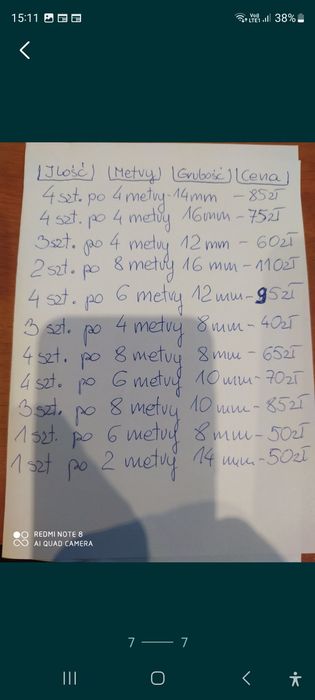 15:11 38%
Ilość Metry Grubość Cena
4 szt. po 4 metry-14mm - 85zł
4 szt. po 4 metry 16mm - 75zł
3szt. po 4 metry 12 mm - 60zł
2szt. po 8 metry 16 mm - 110zł
4 szt. po 6 metry 12mm-95zł
3 szt. po 4 metry 8mm - 40zł
4szt. po 8 metry 8mm - 65zł
4szt. po 6 metry 10mm- 70zł
3szt. po 8 metry 10 mm- 85zł
1szt. po 6 metry 8mm- 50zł
1szt po 2 metry 14 mm-50zł
REDMI NOTE 8
AI QUAD CAMERA
7 — 7